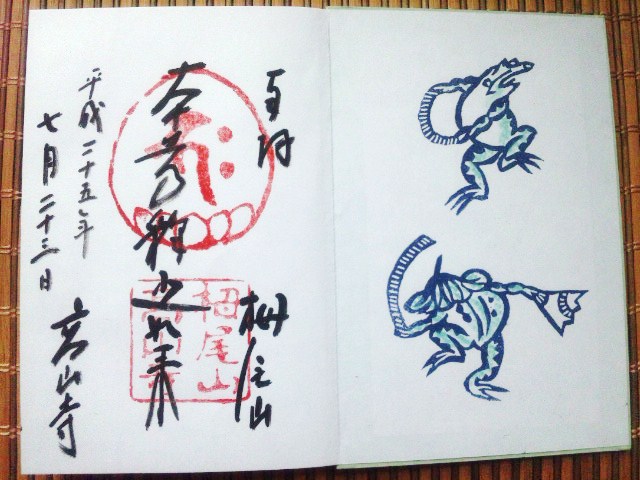 奉拝
栂尾山
釋迦如来
平成二十五年
七月二十三日
高山寺
栂尾山
高山寺